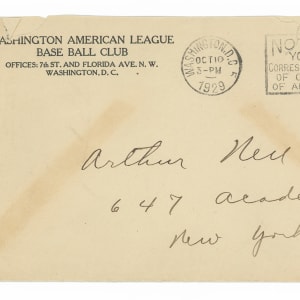 WASHINGTON AMERICAN LEAGUE
BASE BALL CLUB
OFFICES: 7th ST. AND FLORIDA AVE. N. W.
WASHINGTON, D. C.
WASHINGTON, D.C.
OCT 10
3-PM
1929
NO
YO
CORRES
OF C
OF A
Arthur
647 Acade
New York